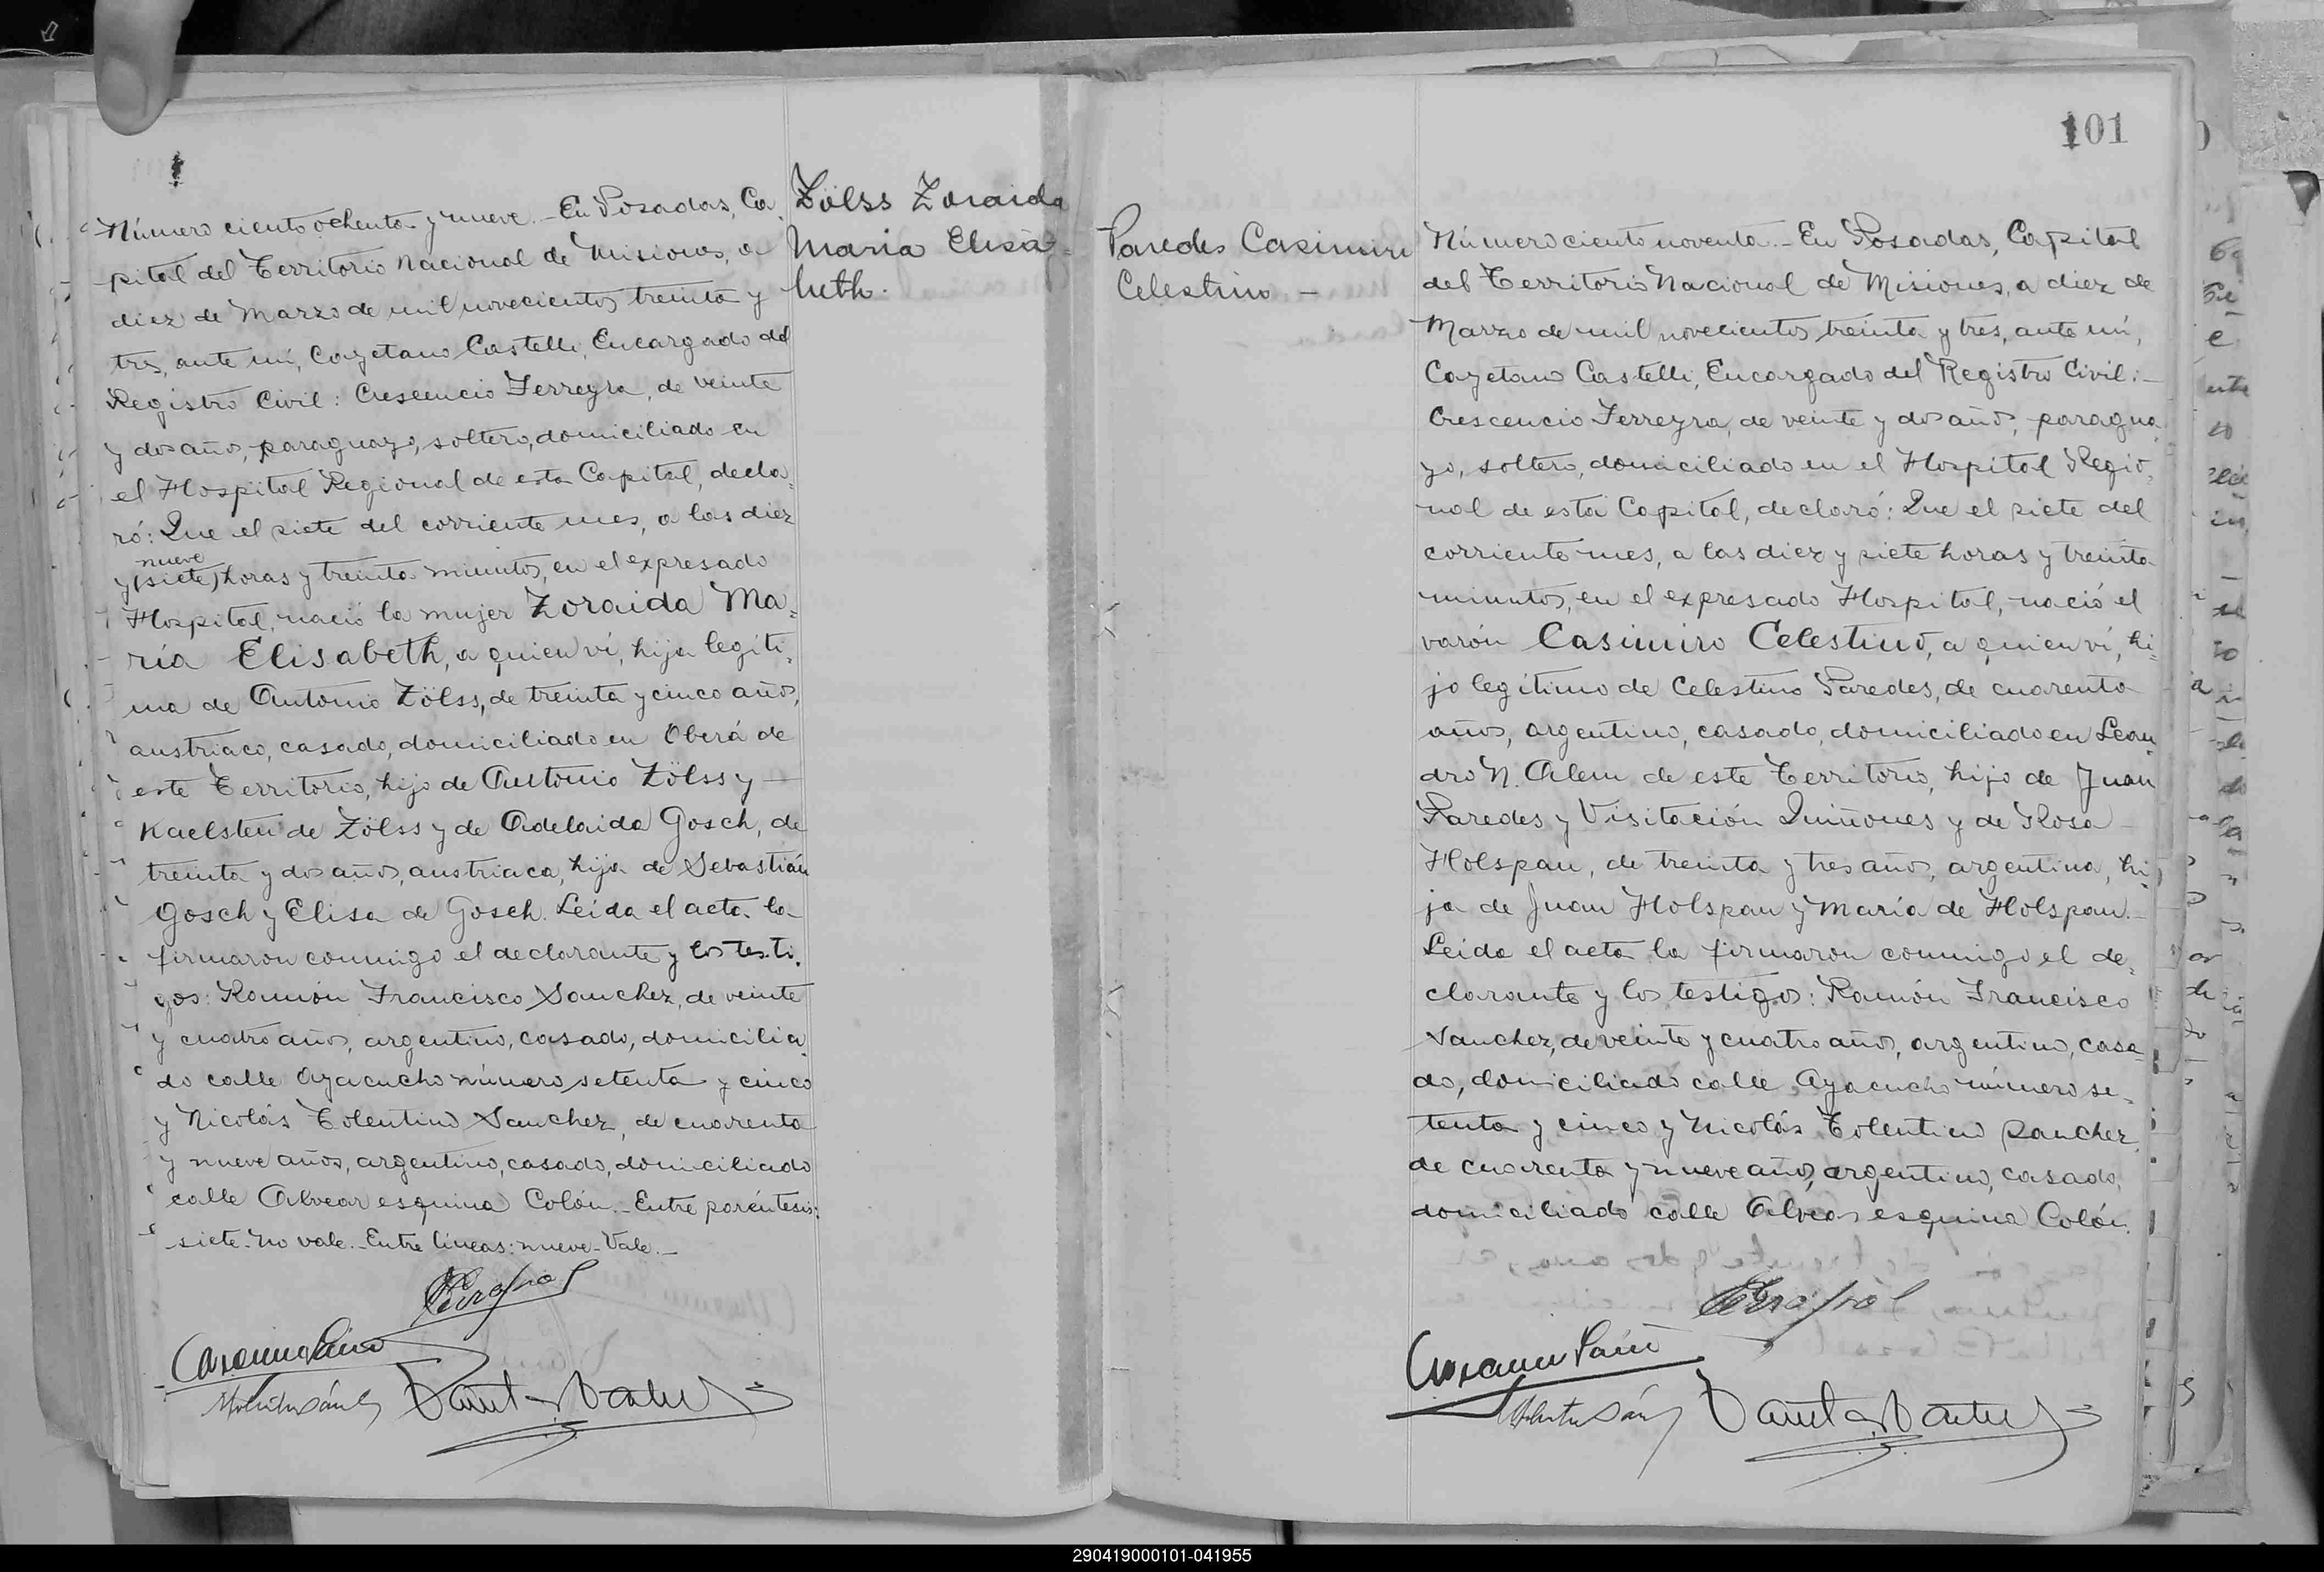 Número ciento ochenta y nueve.- En Posadas, Ca
pital del Territorio Nacional de Misiones, a
diez de Marzo de mil novecientos treinta y
tres, ante mí, Cayetano Castelli, Encargado del
Registro Civil: Crescencio Ferreyra, de veinte
y dos años, paraguayo, soltero, domiciliado en
el Hospital Regional de esta Capital, decla-
ró: Que el siete del corriente mes, a las diez
nueve
y (siete) horas y treinta minutos, en el expresado
Hospital, nació la mujer Zoraida Ma-
ría Elisabeth, a quien ví, hija legíti-
ma de Antonio Zölss, de treinta y cinco años,
austriaco, casado, domiciliado en Oberá de
este Territorio, hijo de Antonio Zölss y
Kaelsten de Zölss y de Adelaida Gosch, de
treinta y dos años, austriaca, hija de Sebastián
Gosch y Elisa de Gosch. Leída el acta la
firmaron conmigo el declarante y los testi-
gos: Ramón Francisco Sanchez, de veinte
y cuatro años, argentino, casado, domicilia-
do calle Ayacucho número setenta y cinco
y Nicolás Tolentino Sanchez, de cuarenta
y nueve años, argentino, casado, domiciliado
calle Alvear esquina Colón.- Entre paréntesis:
siete. No vale.- Entre líneas: nueve- Vale.-
Zölss Zoraida
María Elisa-
beth.
101
Paredes Casimiro
Celestino -
Número ciento noventa.- En Posadas, Capital
del Territorio Nacional de Misiones, a diez de
Marzo de mil novecientos treinta y tres, ante mí,
Cayetano Castelli, Encargado del Registro Civil:-
Crescencio Ferreyra, de veinte y dos años, paragua-
yo, soltero, domiciliado en el Hospital Regio-
nal de esta Capital, declaró: Que el siete del
corriente mes, a las diez y siete horas y treinta
minutos, en el expresado Hospital, nació el
varón Casimiro Celestino, a quien ví, hi-
jo legítimo de Celestino Paredes, de cuarenta
años, argentino, casado, domiciliado en Lean
dro N. Alem de este Territorio, hijo de Juan
Paredes y Visitación Quiñones y de Rosa
Holspan, de treinta y tres años, argentina, hi-
ja de Juan Holspan y María de Holspan.-
Leida el acta la firmaron conmigo el de-
clarante y los testigos: Ramón Francisco
Sanchez, de veinte y cuatro años, argentino, casa
do, domiciliado calle Ayacucho número se-
tenta y cinco y Nicolás Tolentino Sanchez,
de cuarenta y nueve años, argentino, casado,
domiciliado calle Alvear esquina Colón.
290419000101-041955